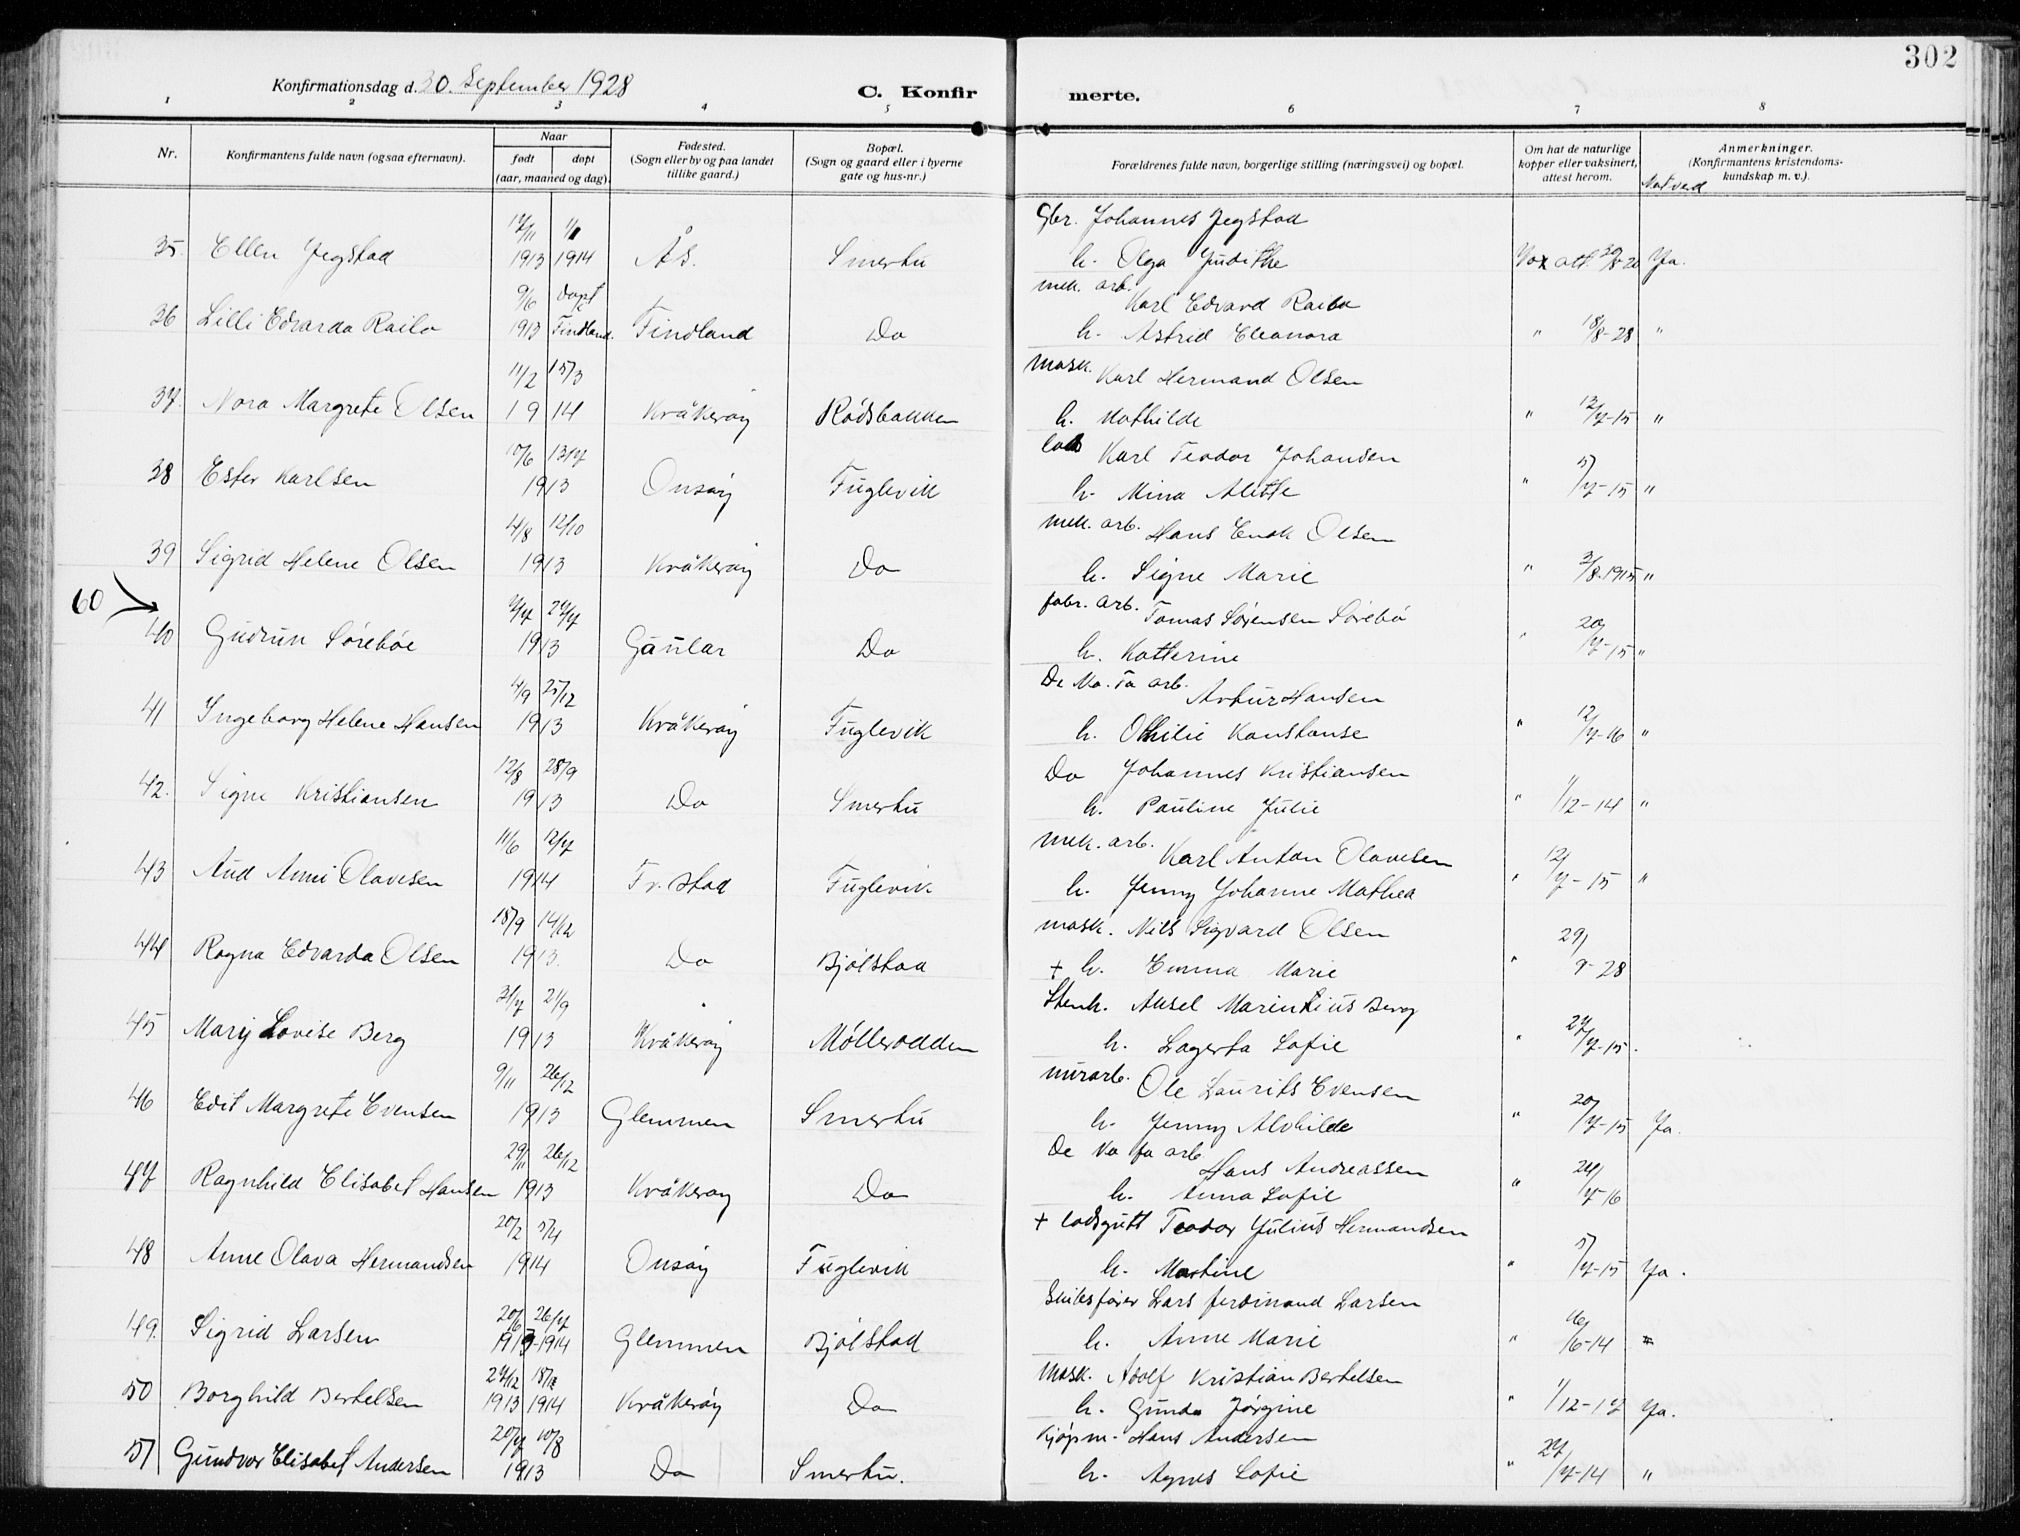 302
Konfirmationsdag d. 30. September 1928
C. Konfir merte.
1 2 3 4 5 6 7 8
Nr.
Konfirmantens fulde navn (ogsaa efternavn).
Naar
født døpt
(aar, maaned og dag).
Fødested.
(Sogn eller by og paa landet
tillike gaard.)
Bopæl.
(Sogn og gaard eller i byerne
gate og hus-nr.)
Forældrenes fulde navn, borgerlige stilling (næringsvei) og bopæl.
Om hat de naturlige
kopper eller vaksinert,
attest herom.
Anmerkninger.
(Konfirmantens kristendoms-
kundskap m. v.).
Gbr. Johannes Jegstad
35. Ellen Jegstad 1913 1914 Ås. Smertu h. Olga Judithe Ja.
mek. arb. Karl Edvard Railo
36 Lilli Edvarda Railo 9/6 1913 døpt i Findland. Findland Do h. Astrid Eleonora " 18/8-28 "
mask. Karl Hermand Olsen
37. Nora Margrete Olsen 11/2 15/3 1914 Kråkerøy Rødsbakken h. Mathilde " 12/7-15 "
Karl Teodor Johansen
38 Ester Karlsen 10/6 13/7 1913 Onsøy Fuglevik h. Mina Alette " 5/7-15 "
mek. arb. Hans Enok Olsen
39 Sigrid Helene Olsen 4/8 12/10 1913 Kråkerøy Do h. Signe Marie " 3/8-1915 "
60
fabr. arb. Tomas Sørensen Sørebø
40 Gudrun Sørebøe 27/7 1913 Gaular Do h. Katterine " 20/7-15 "
De No. Fa arb. Artur Hansen
41 Ingeborg Helene Hansen 4/9 25/12 1913 Kråkerøy Fuglevik h. Othilie Konstanse " 12/7-16 "
Do Johannes Kristiansen
42. Signe Kristiansen 12/8 28/9 1913 Do Smertu h. Pauline Julie " 1/12-14 "
mek. arb. Karl Anton Olavesen
43 Aud Anni Olavesen 11/6 12/7 1914 Fr. stad Fuglevik h. Jenny Johanne Mathea " 12/7-15 "
mask. Nils Sigvard Olsen
44 Ragna Edvarda Olsen 18/9 14/12 1913. Do Bjølstad + h. Emma Marie " 29/8-28
Stenh. Aksel Marentius Berg
45 Mary Lovise Berg 31/7 21/9 1913 Kråkerøy Møllerodden h. Lagerta Sofie " 27/7-15.
murarb. Ole Laurits Evensen
46 Edit Margrete Evensen 9/11 26/12 1913 Glemmen Smertu h. Jenny Alvhilde " 20/7-15 Ja.
De No fa arb. Hans Andreassen
47 Ragnhild Elisabet Hansen 29/11 26/12 1913 Kråkerøy Do h. Anna Sofie "
+ lodsgutt Teodor Julius Hermandsen
48 Anne Olava Hermandsen 20/2 5/4 1914 Onsøy Fuglevik h. Martine " 5/7-15 Ja.
Skibsfører Lars Ferdinand Larsen
49. Sigrid Larsen 20/6 26/7 1913-1914 Glemmen Bjølstad h. Anne Marie " 16/6-14 "
Mask. Adolf Kristian Bertelsen
50 Borghild Bertelsen 27/12 1913 1914 Kråkerøy Do h. Gunda Jørgine " 1/12-17 Ja.
Kjøpm. Hans Andersen
51 Gundvor Elisabet Andersen 20/7 10/8 1913 Do Smertu. h. Agnes Sofie " 27/7-14 "